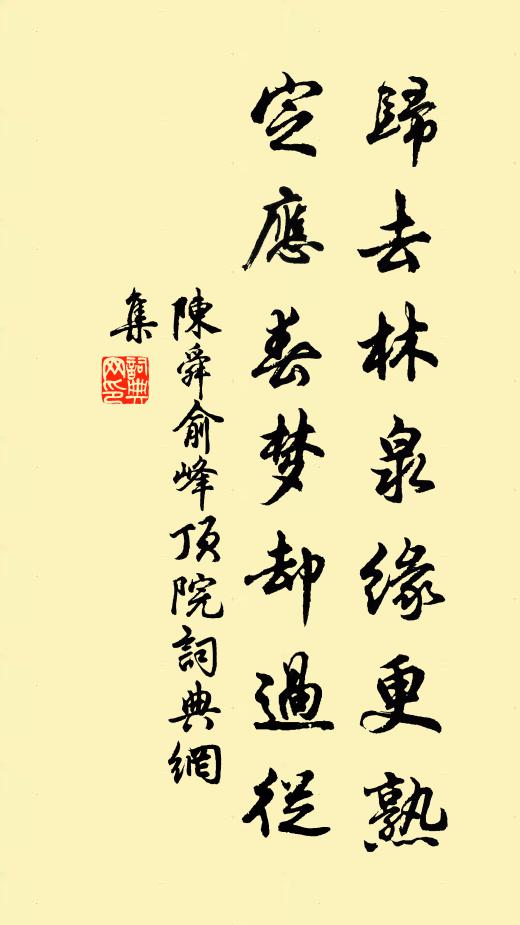 歸去林泉緣更熟
定應春梦却過從
陳舜俞峰頂院詞典網
集
詞典
网印